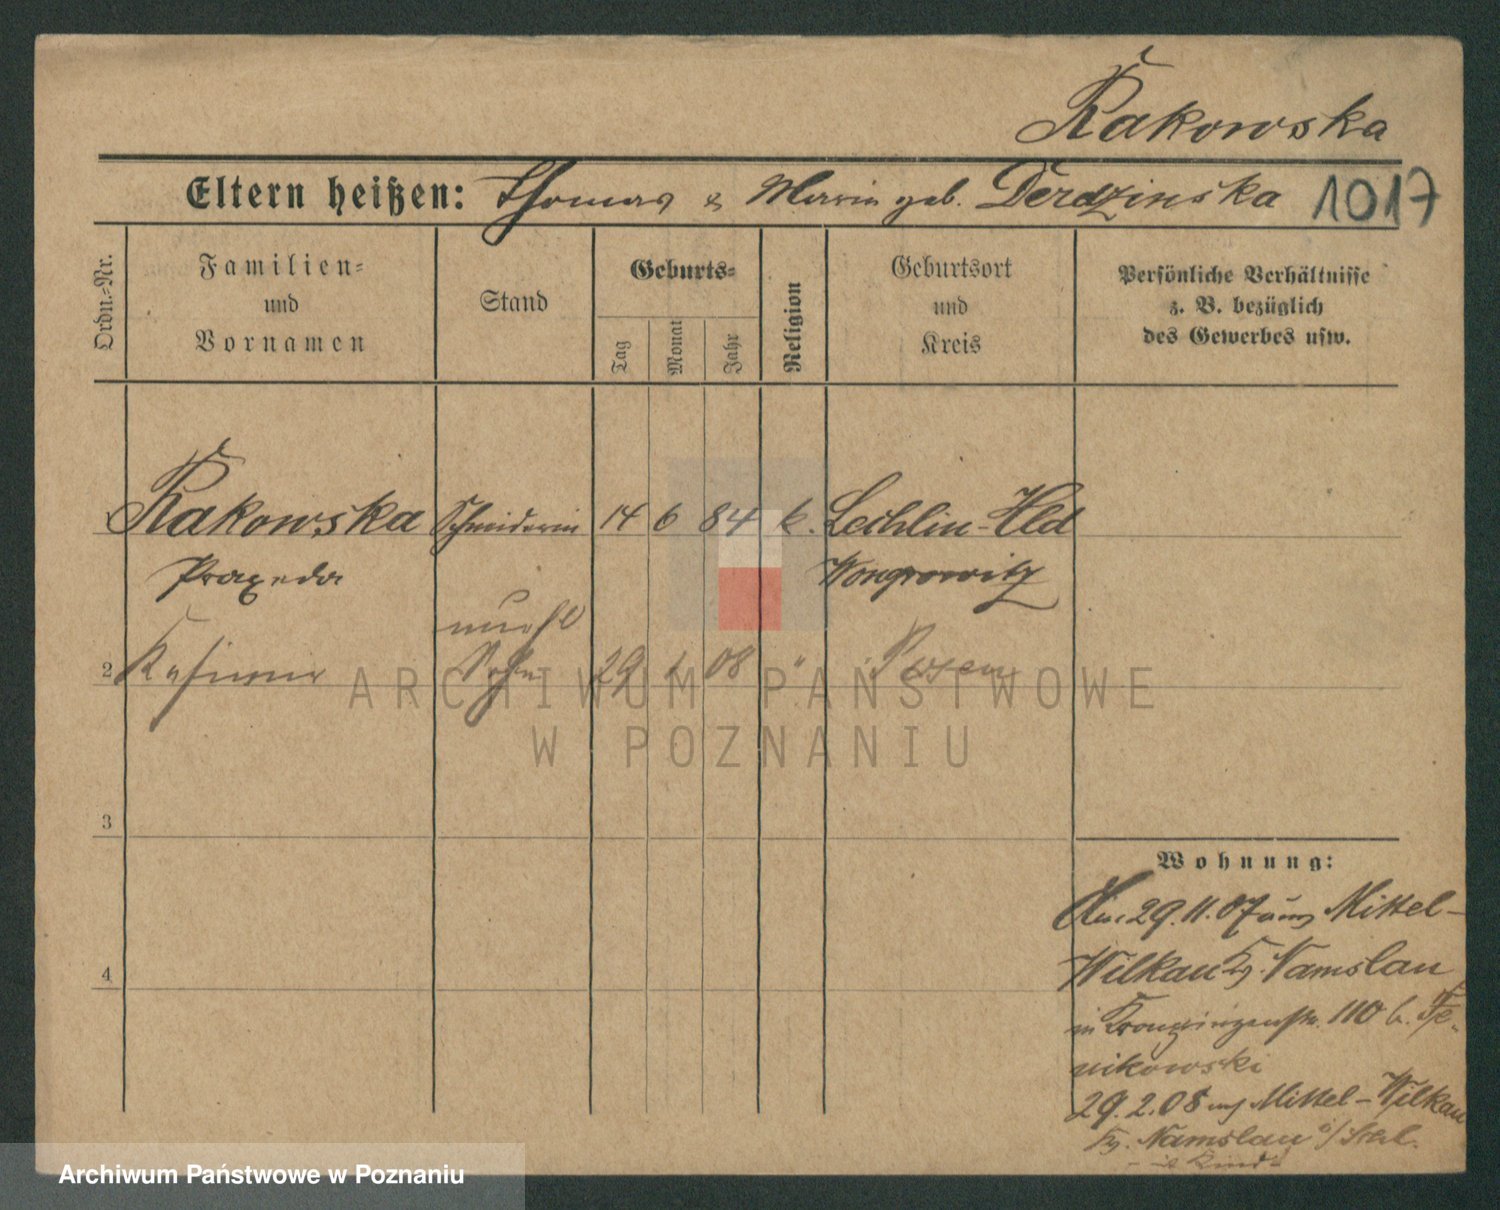 Rakowska
Eltern heißen: Thomas & Marie geb. Derdzinska 1017
Ordn.-Nr.
Familien-
und
Vornamen
Stand
Geburts-
Tag
Monat
Jahr
Religion
Geburtsort
und
Kreis
Persönliche Verhältnisse
z. B. bezüglich
des Gewerbes usw.
Rakowska Schneiderin 14 6 84 k. Lechlin-Hld
Praxeda Wongrowitz
unehl
2 Kasimir Sohn 29 1 08 " Posen
3
4
Wohnung:
29.11.07 aus Mittel-
Wilkau Kr. Namslau
in Kronprinzenstr. 110 b.
nikowski
29.2.08 Mittel-Wilkau
Kr. Namslau
Kind
ARCHIWUM PAŃSTWOWE
W POZNANIU
Archiwum Państwowe w Poznaniu